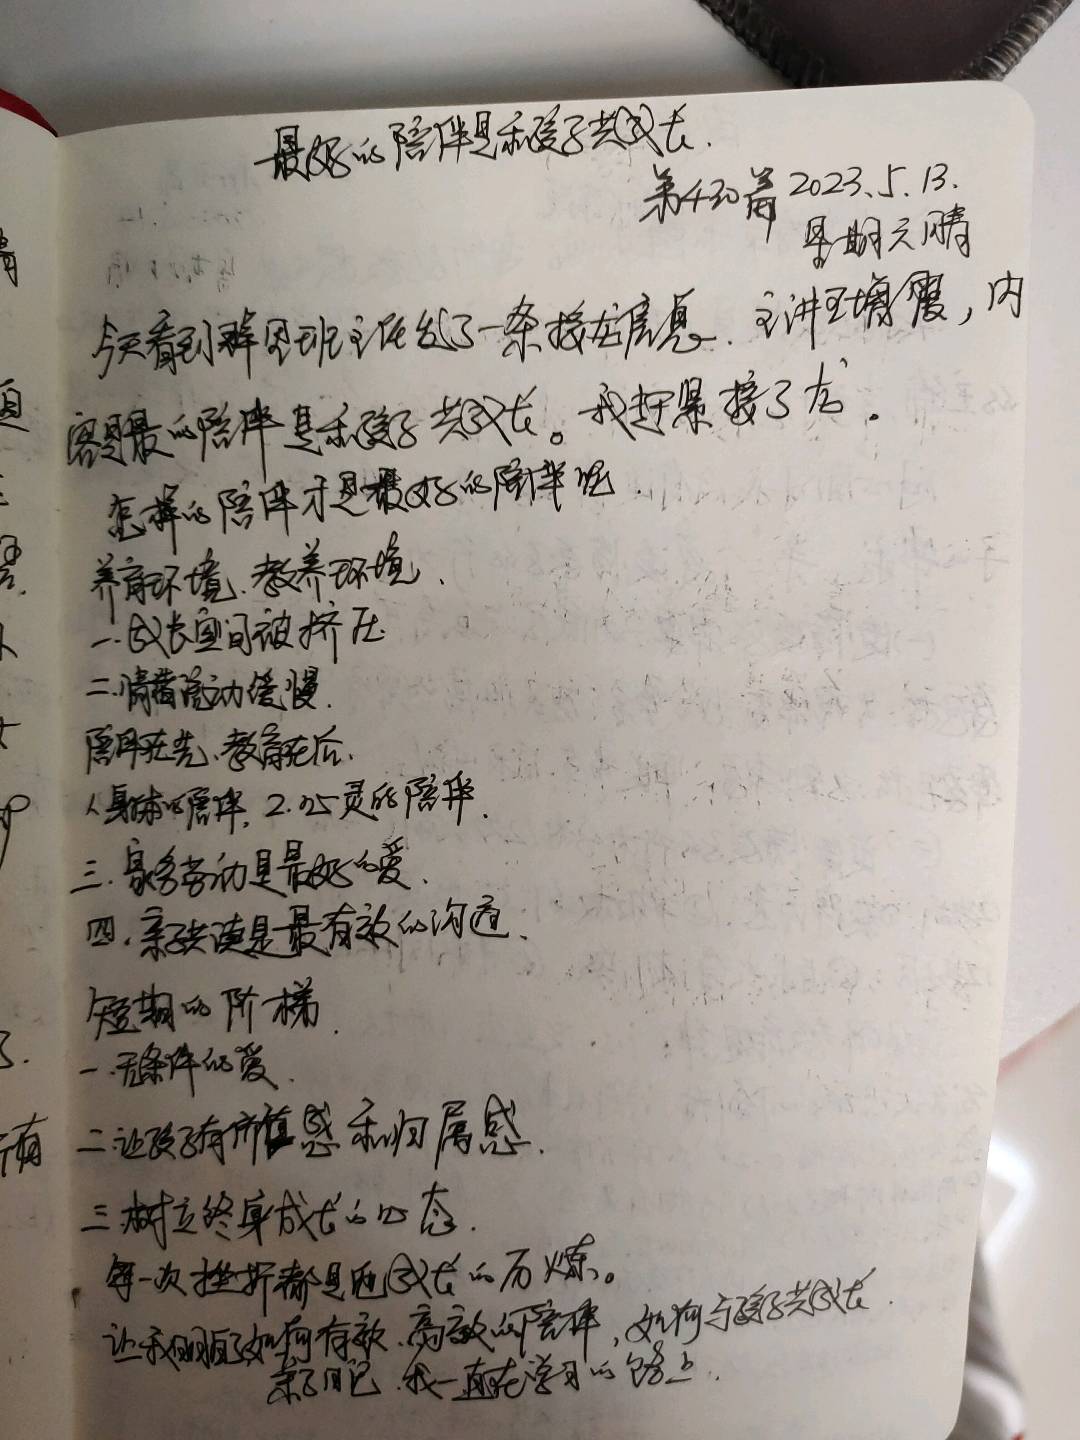 最好的陪伴是和孩子共成长.
第430篇 2023.5.13.
星期六 晴
今天看到 班主任发了一条接龙信息. 主讲王 霞，内
容是最的陪伴是和孩子共成长。我赶紧接了龙.
怎样的陪伴才是最好的陪伴呢
养育环境. 教养环境.
一.成长空间被挤压
二.情 流动缓慢.
陪伴在先、教育在后.
1.身体的陪伴. 2.心灵的陪伴.
三.家务劳动是最好的爱.
四.亲子共读是最有效的沟通.
的阶梯.
一.无条件的爱.
二.让孩子有价值感和归属感.
三.树立终身成长的心态.
每一次挫折都是 成长的历炼。
让我明白了如何有效.高效的陪伴，如何与孩子共成长.
亲子日记.我一直在学习的路上.